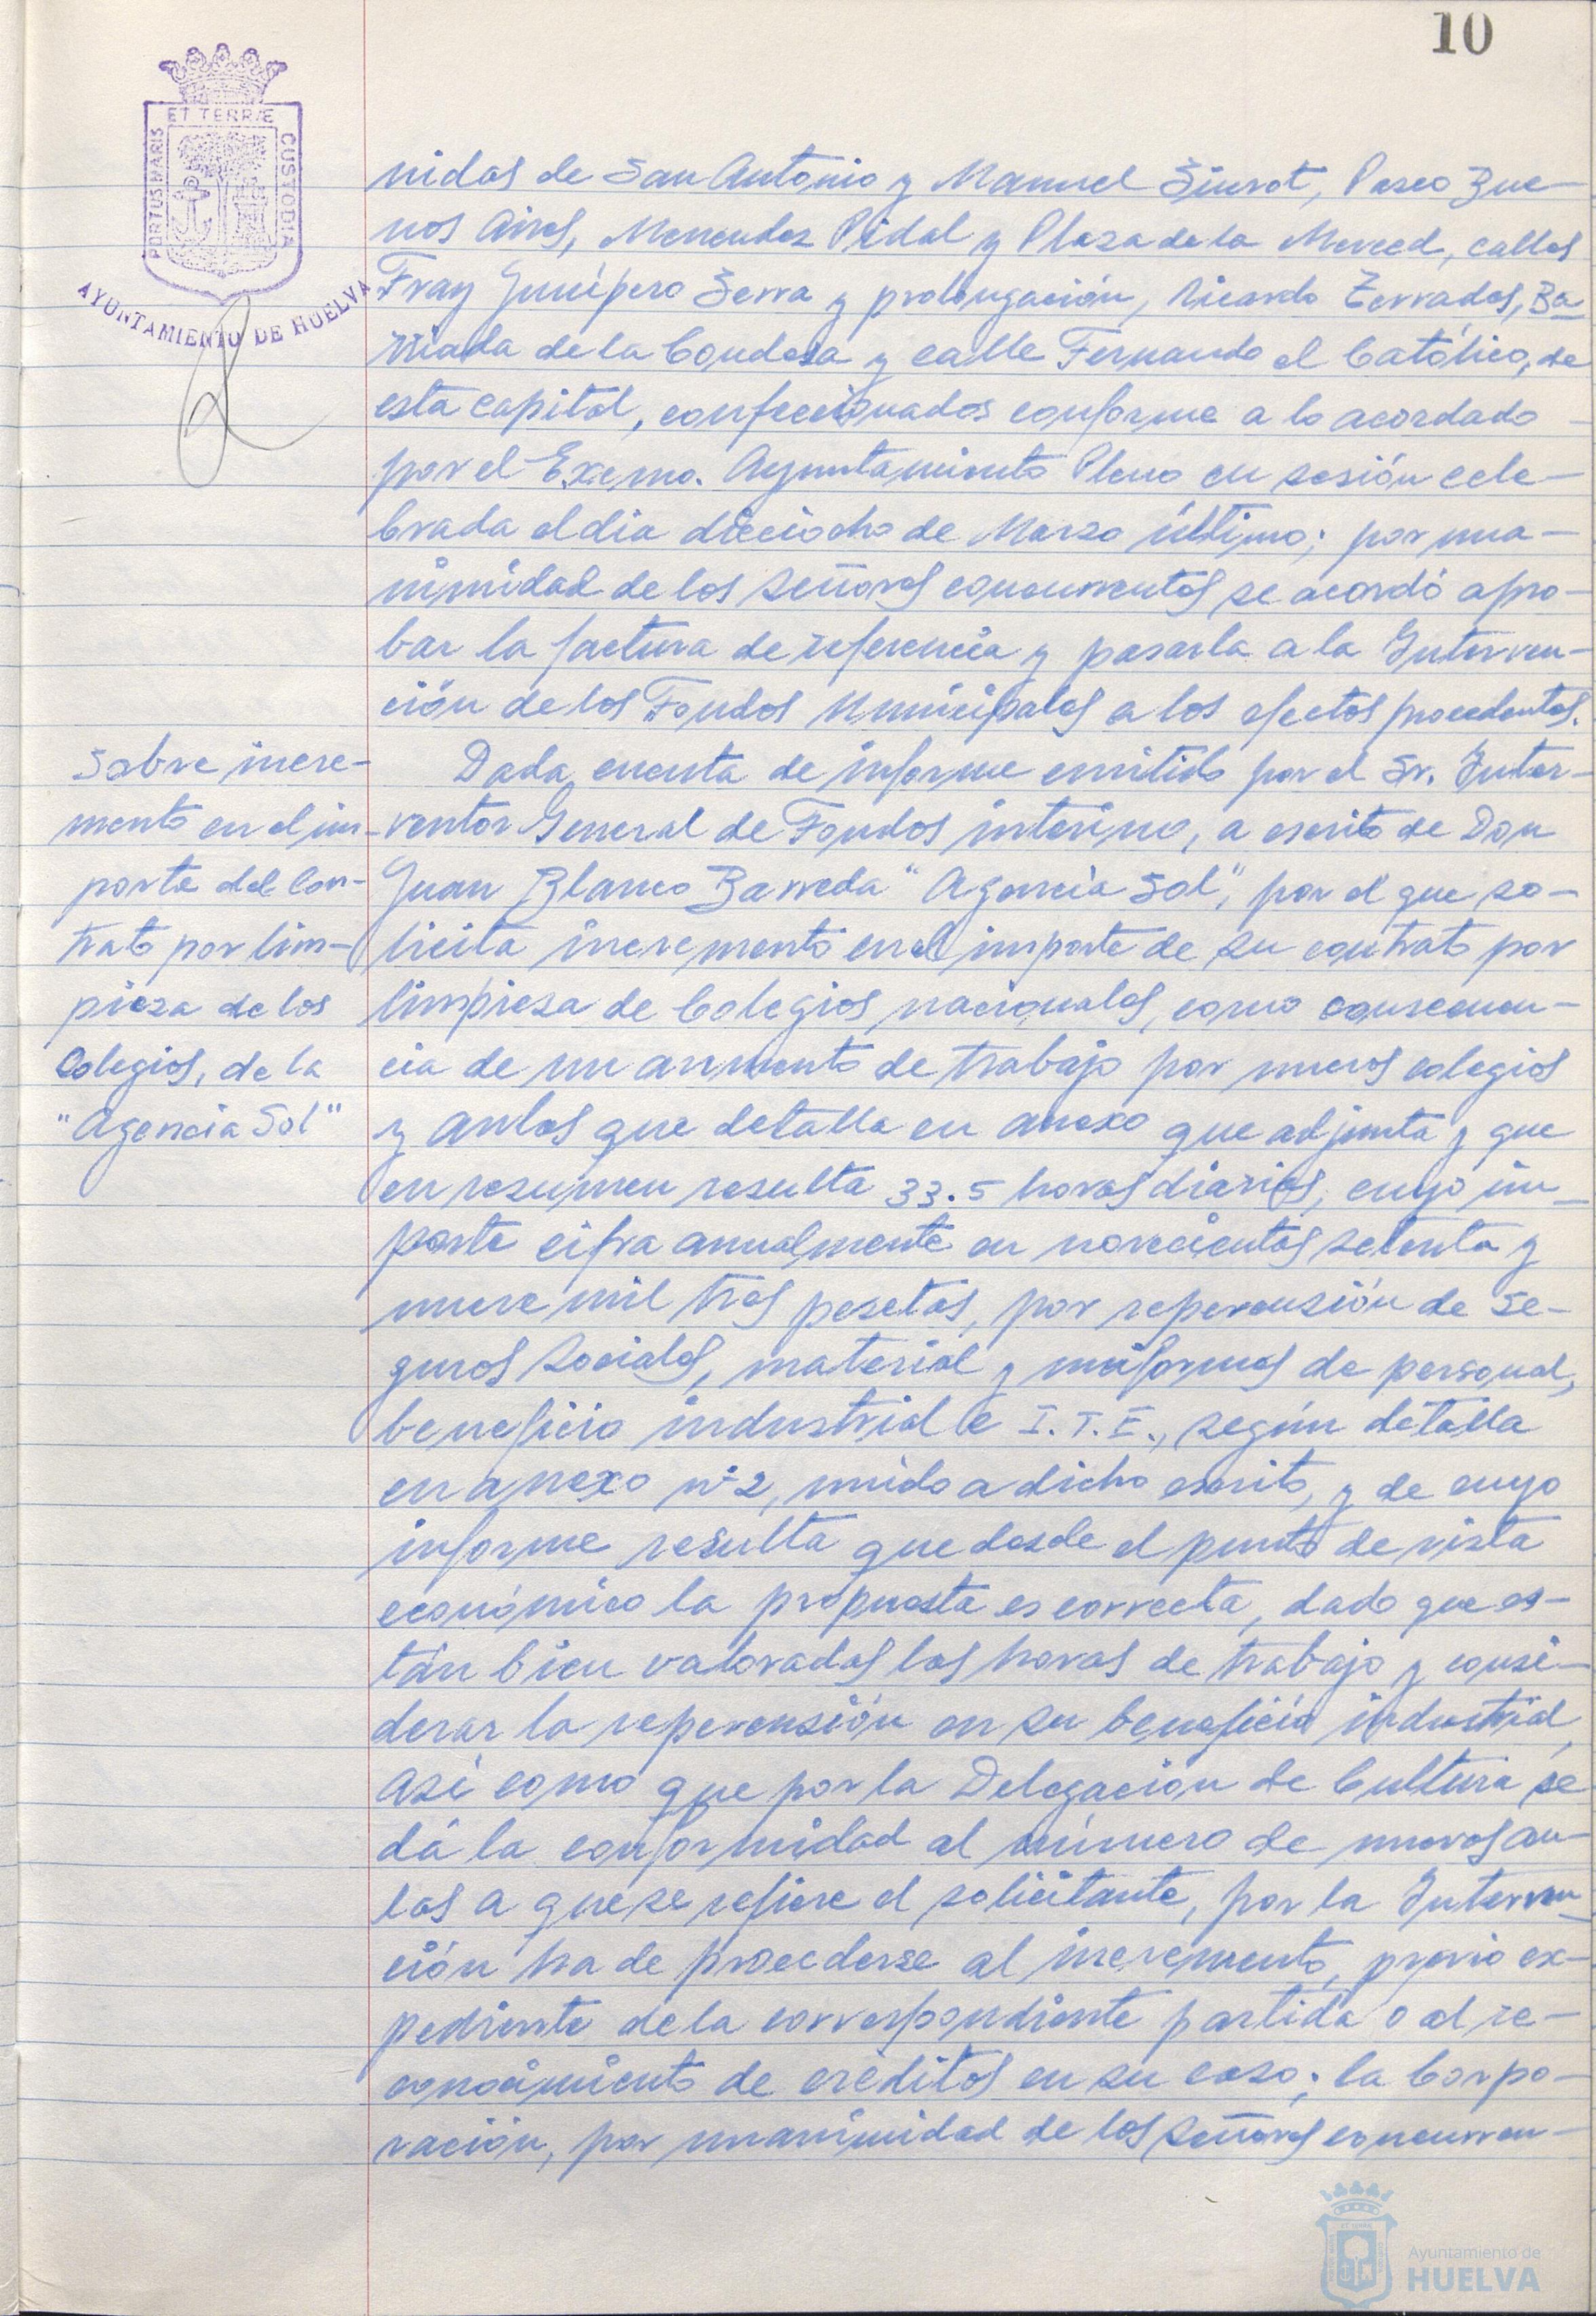 10
ET TERRÆ
PORTUS MARIS
CUSTODIA
AYUNTAMIENTO DE HUELVA
nidas de San Antonio y Manuel Siurot, Paseo Bue-
nos Aires, Menendez Pidal y Plaza de la Merced, calles
Fray Junípero Serra y prolongación, Ricardo Terrades, Ba-
rriada de la Condesa y calle Fernando el Católico, de
esta capital, confeccionados conforme a lo acordado
por el Excmo. Ayuntamiento Pleno en sesión cele-
brada el dia dieciocho de Marzo último; por una-
nimidad de los señores concurrentes se acordó apro-
bar la factura de referencia y pasarla a la Interven-
ción de los Fondos Municipales a los efectos procedentes.
Sobre incre-
mento en el im-
porte del con-
trato por lim-
pieza de los
Colegios, de la
"Agencia Sol"
Dada cuenta de informe emitido por el Sr. Inter-
ventor General de Fondos interino, a escrito de Don
Juan Blanco Barreda "Agencia Sol", por el que so-
licita incremento en el importe de su contrato por
limpieza de Colegios nacionales, como consecuen-
cia de un aumento de trabajo por nuevos colegios
y aulas que detalla en anexo que adjunta y que
en resumen resulta 33.5 horas diarias, cuyo im-
porte cifra anualmente en novecientas setenta y
nueve mil tres pesetas, por repercusión de Se-
guros Sociales, material y uniformes de personal,
beneficio industrial e I.T.E., según detalla
en anexo nº 2, unido a dicho escrito, y de cuyo
informe resulta que desde el punto de vista
económico la propuesta es correcta, dado que es-
tán bien valoradas las horas de trabajo y consi-
derar la repercusión en su beneficio industrial,
así como que por la Delegación de Cultura se
dá la conformidad al número de nuevas au-
las a que se refiere el solicitante, por la Interven-
ción ha de procederse al incremento, previo ex-
pediente de la correspondiente partida o al re-
conocimiento de créditos en su caso; la Corpo-
ración, por unanimidad de los señores concurren-
Ayuntamiento de
HUELVA